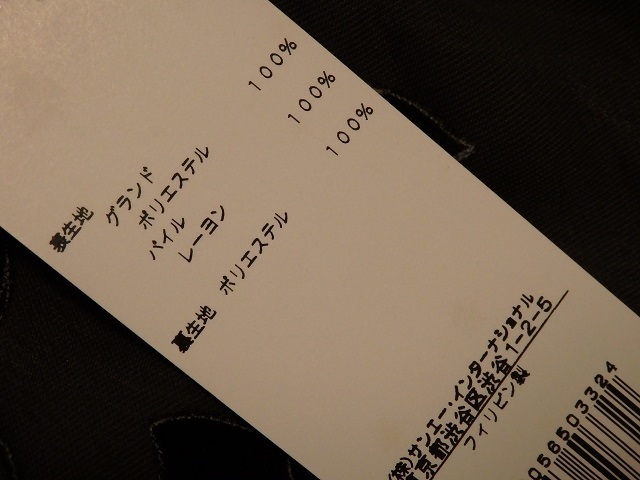 表生地 グランド
ポリエステル 100%
パイル
レーヨン 100%
裏生地 ポリエステル 100%
(株)サンエー・インターナショナル
東京都渋谷区渋谷1-2-5
フィリピン製
056503324